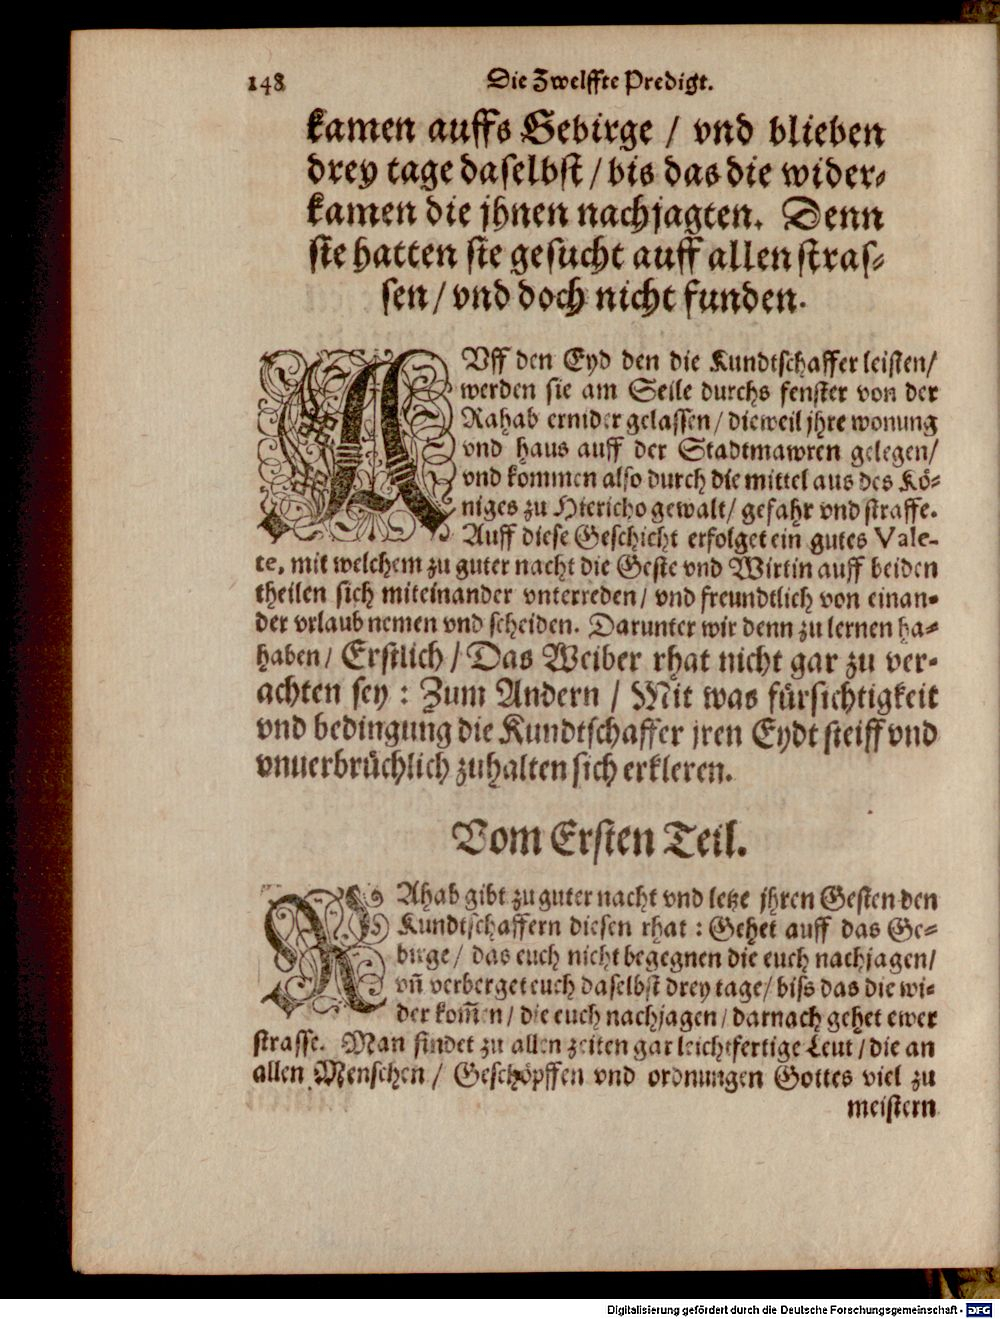 148 Die Zwelffte Predigt.
kamen auffs Gebirge / vnd blieben
drey tage daselbst / bis das die wider-
kamen die jhnen nachjagten. Denn
sie hatten sie gesucht auff allen stras-
sen / vnd doch nicht funden.
AVff den Eyd den die Kundtschaffer leisten /
werden sie am Seile durchs fenster von der
Rahab ernider gelassen / dieweil jhre wonung
vnd haus auff der Stadtmawren gelegen /
vnd kommen also durch die mittel aus des Kö-
niges zu Hiericho gewalt / gefahr vnd straffe.
Auff diese Geschicht erfolget ein gutes Vale-
te, mit welchem zu guter nacht die Geste vnd Wirtin auff beiden
theilen sich miteinander vnterreden / vnd freundtlich von einan-
der vrlaub nemen vnd scheiden. Darunter wir denn zu lernen ha-
haben / Erstlich / Das Weiber rhat nicht gar zu ver-
achten sey : Zum Andern / Mit was fürsichtigkeit
vnd bedingung die Kundtschaffer jren Eydt steiff vnd
vnuerbrüchlich zuhalten sich erkleren.
Vom Ersten Teil.
RAhab gibt zu guter nacht vnd letze jhren Gesten den
Kundtschaffern diesen rhat : Gehet auff das Ge-
birge / das euch nicht begegnen die euch nachjagen /
vn̄ verberget euch daselbst drey tage / biss das die wi-
der kom̄en / die euch nachjagen / darnach gehet ewer
strasse. Man findet zu allen zeiten gar leichtfertige Leut / die an
allen Menschen / Geschöpffen vnd ordnungen Gottes viel zu
meistern
Digitalisierung gefördert durch die Deutsche Forschungsgemeinschaft - DFG